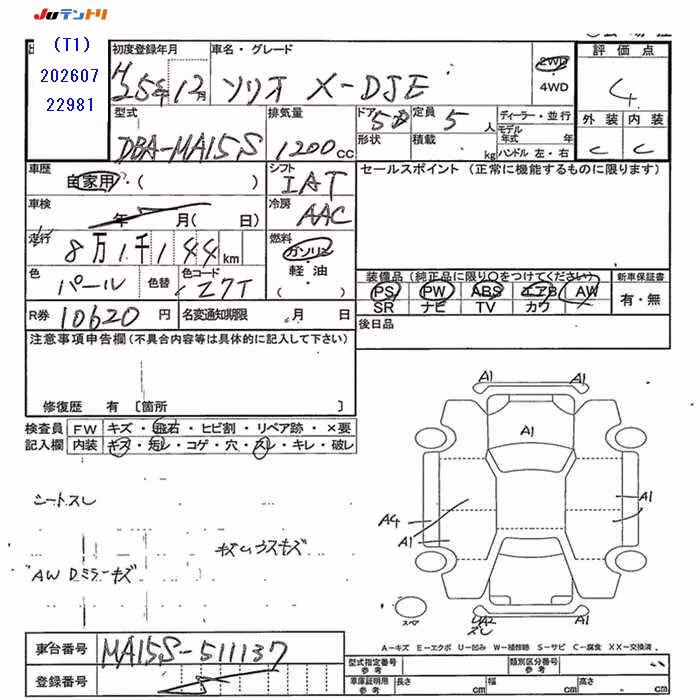 JUテントリ
(T1) 初度登録年月 車名・グレード 2WD 評価点
202607 H25年12月 ソリオ X-DJE 4WD 4
22981 型式 排気量 ドア 定員 ディーラー・並行 外装 内装
DBA-MA15S 1200cc 5 5人 モデル年式 年 C C
形状 積載 kg ハンドル 左・右
車歴 シフト セールスポイント (正常に機能するものに限ります)
自家用・( ) IAT
車検 年 月( 日) 冷房 AAC
走行 8万1千144km 燃料 ガソリン
軽油
( )
色 パール 色替 色コード Z7T
装備品 (純正品に限り○をつけてください) 新車保証書
PS PW ABS エアB AW 有・無
SR ナビ TV カワ
R券 10620円 名変通知期限 月 日 後日品
注意事項申告欄(不具合内容等は具体的に記入して下さい)
修復歴 有 [箇所 ]
検査員 FW キズ・飛石・ヒビ割・リペア跡・×要
記入欄 内装 キズ・汚レ・コゲ・穴・スレ・キレ・破レ
A1 A1
A1
シートスレ
A4 A1
A1
AW Dミラーキズ
スペア
UA2
スレ
A1
A-キズ E-エクボ U-凹み W-補修跡 S-サビ C-腐食 XX-交換済
車台番号 MA15S-511137
型式指定番号 参考 類別区分番号 参考
登録番号
車庫証明用 参考 長さ cm 幅 cm 高さ cm